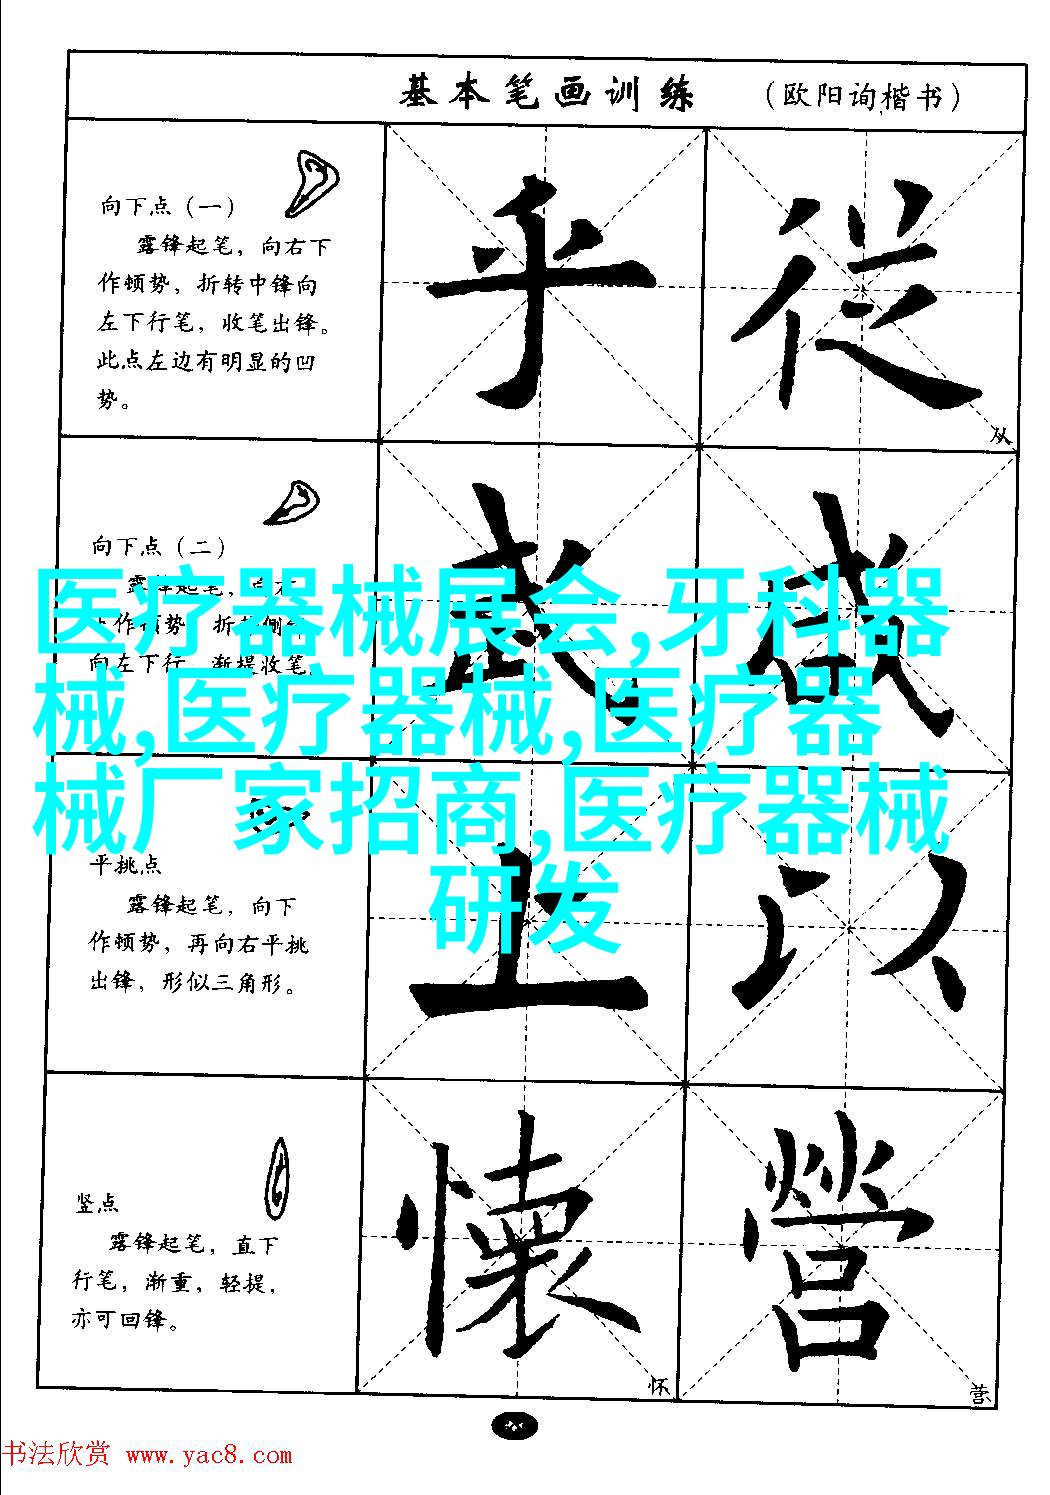 基本笔画训练 （欧阳询楷书）
向下点（一）
露锋起笔，向右下
作顿势，折转中锋向
左下行笔，收笔出锋。
此点左边有明显的凹
势。
乎 從
从
向下点（二）
露锋起笔，向右
作顿势 折 侧
向左下行 渐提收笔
武 咸
医疗器械展会,牙科器
械,医疗器械,医疗器
械厂家招商,医疗器械
研发
平挑点
露锋起笔，向下
作顿势，再向右平挑
出锋，形似三角形。
上 以
竖点
露锋起笔，直下
行笔，渐重，轻提，
亦可回锋。
懷 營
怀 营
书法欣赏 www.yac8.com